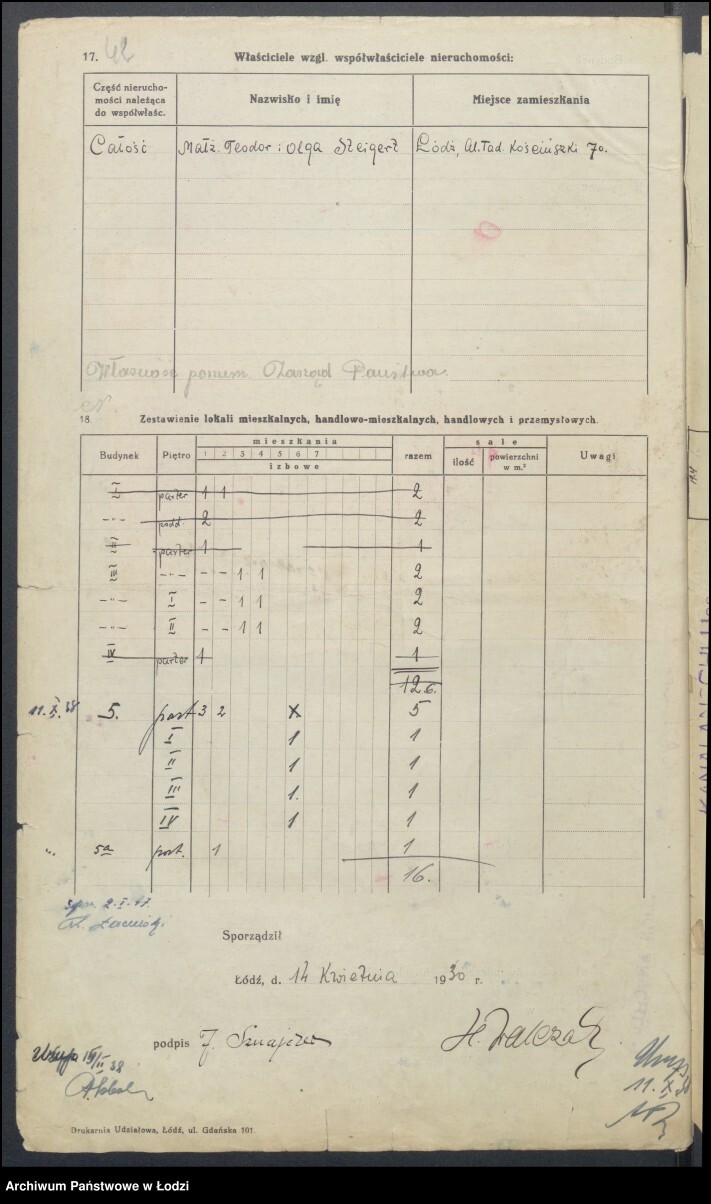 17. 42 Właściciele wzgl. współwłaściciele nieruchomości:
Część nierucho-
mości należąca
do współwłaśc.
Nazwisko i imię
Miejsce zamieszkania
Całość Małż. Teodor i Olga Steigert Łódź, Al. Tad. Kościuszki 70.
Własność poniem. Zarząd Państwa
18. Zestawienie lokali mieszkalnych, handlowo-mieszkalnych, handlowych i przemysłowych.
mieszkania sale
Budynek Piętro 1 2 3 4 5 6 7 razem ilość powierzchni Uwagi
izbowe w m.²
I parter 1 1 2
-"- podd. 2 2
II parter 1 1
III -"- - - 1 1 2
-"- I - - 1 1 2
-"- II - - 1 1 2
IV parter 1 1
12 6.
11.X.38 5. part 3 2 x 5
I 1 1
II 1 1
III 1. 1
IV 1 1
" 5a part. 1 1
16.
Sporządził
Łódź, d. 14 Kwietnia 1930 r.
podpis J. Sznajder H. Walczak
15/II 38
11.X 38
Drukarnia Udziałowa, Łódź, ul. Gdańska 101.
Archiwum Państwowe w Łodzi